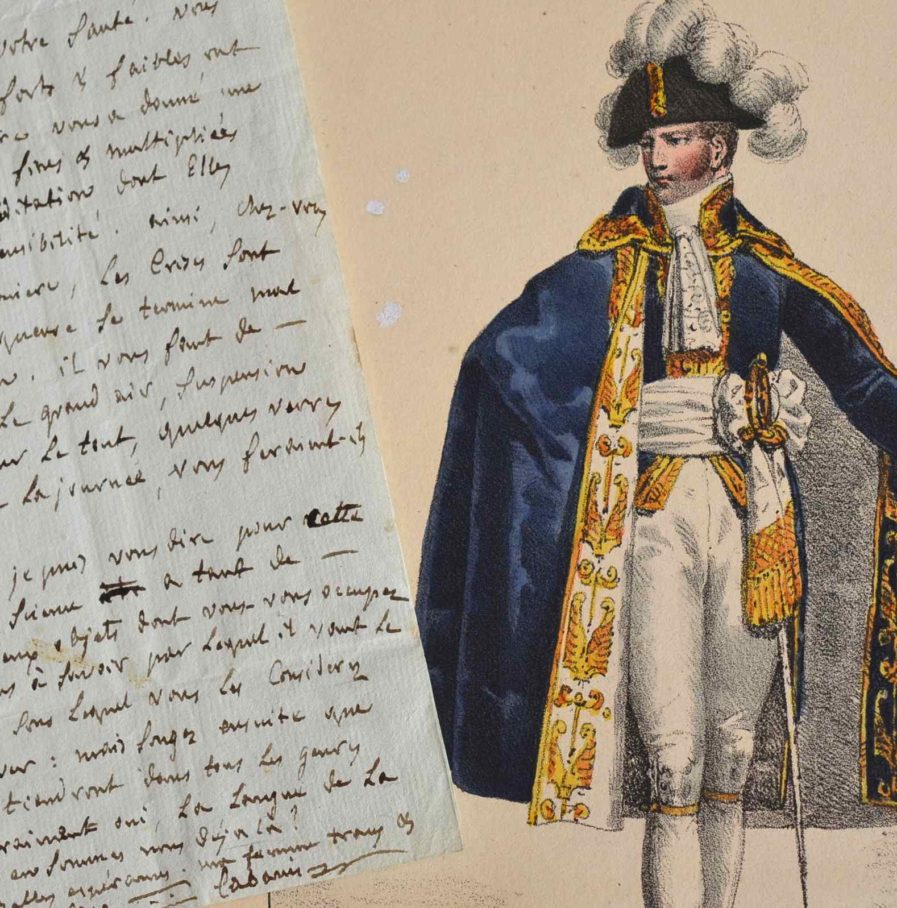 votre santé. vous
forts & faibles ont
vous a donné une
fines & multipliées
dont Elles
sensibilité. ainsi, chez-vous
, les Crises sont
se termine mal
. il vous faut de —
Le grand air, suspension
sur le tout, quelques verres
La journée, vous feront-ils
je puis vous dire pour cette
Science a tant de —
objets dont vous vous occupez
à savoir par lequel il vaut le
sous lequel vous les Considerez
: mais songez ensuite que
tiendront dans tous les genres
vraiment oui, la langue de la
en sommes nous déjà là?
Cabanis